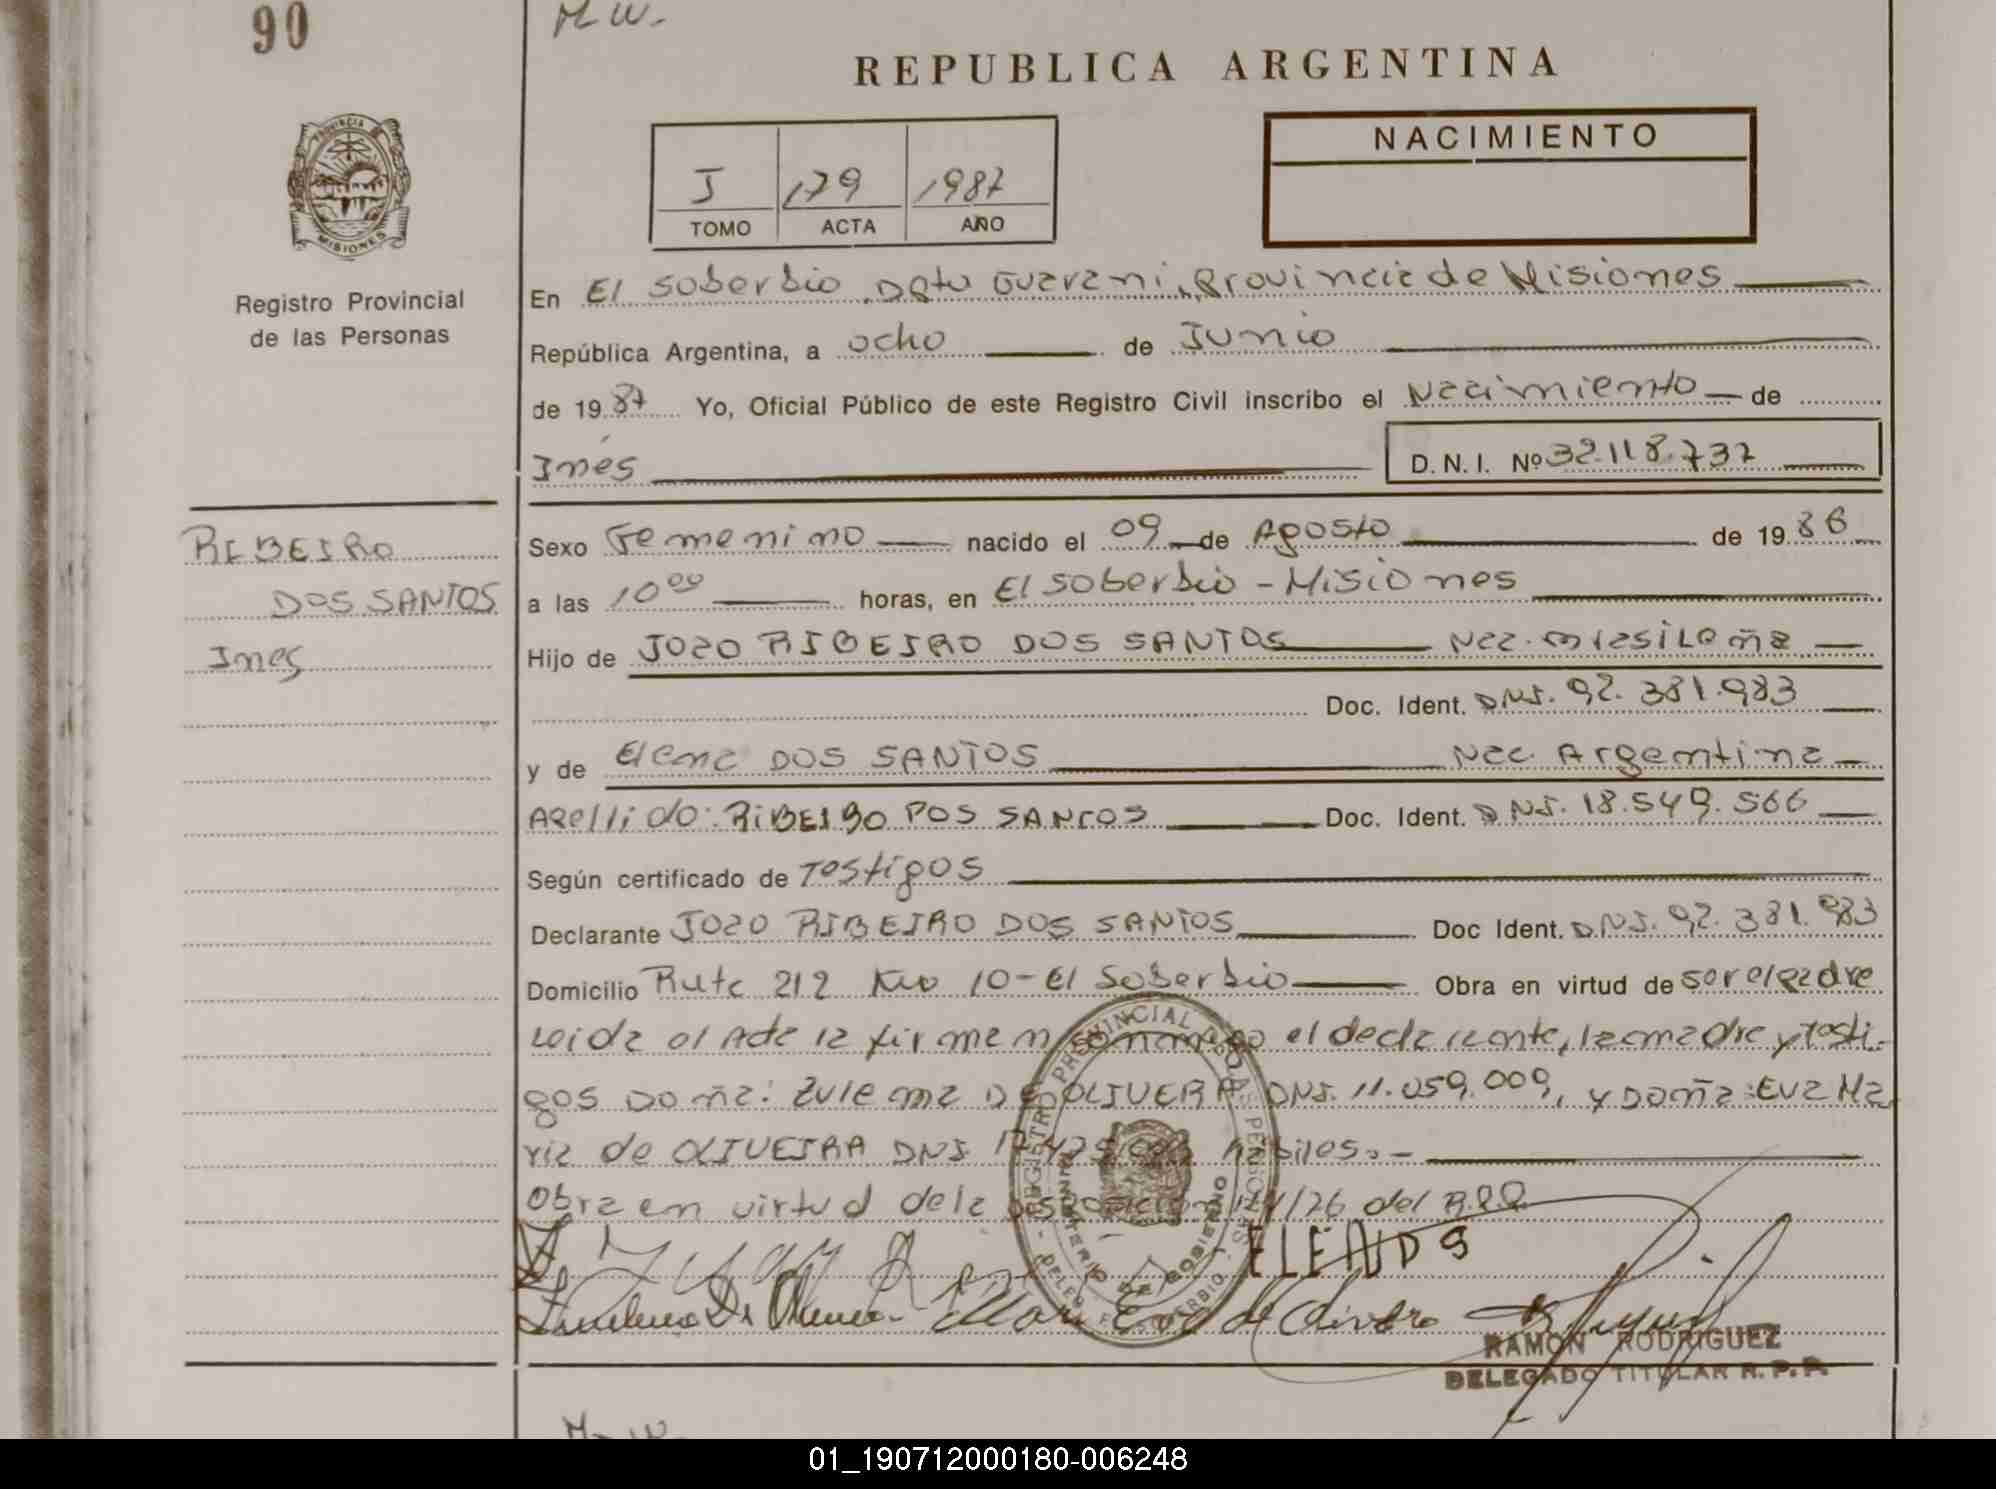 90
M.W.
REPUBLICA ARGENTINA
PROVINCIA DE MISIONES
Registro Provincial
de las Personas
J 179 1987
TOMO ACTA AÑO
NACIMIENTO
En El Soberbio Dpto Guarani, Provincia de Misiones
República Argentina, a ocho de Junio
de 1987 Yo, Oficial Público de este Registro Civil inscribo el Nacimiento de
Inés D.N.I. Nº 32.118.737
RIBEIRO
DOS SANTOS
Ines
Sexo Femenino nacido el 09 de Agosto de 1986
a las 10 00 horas, en El Soberbio - Misiones
Hijo de Joao RIBEIRO DOS SANTOS Nac. Brasileña
Doc. Ident. DNI. 92.381.983
y de Elena DOS SANTOS Nac. Argentina
Apellido: RIBEIRO DOS SANTOS Doc. Ident. DNI. 18.549.566
Según certificado de Testigos
Declarante Joao RIBEIRO DOS SANTOS Doc Ident. DNI. 92.381.983
Domicilio Ruta 212 Km 10 - El Soberbio Obra en virtud de ser el padre
Leida el Acta la firman conmigo el declarante, la madre y testi-
gos Doña: Zulema DE OLIVERA DNI. 11.059.009, y Doña: Eva Ma
ria de OLIVEIRA DNI habiles.-
Obra en virtud de la Disposicion /76 del R.P.P.
REGISTRO PROVINCIAL DE LAS PERSONAS
MINISTERIO DE GOBIERNO
ELENA D S
RAMON RODRIGUEZ
DELEGADO TITULAR R.P.P.
M.W.
01_190712000180-006248